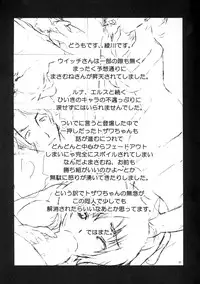 どうもです。綾川です。
ウイッチさんは一部の隙も無く
まったく予想通りに
まさむねさんが昇天されてしました。
ルナ、エルスと続く
ひいきのキャラの不遇っぷりに
涙せずにはいられませんでした。
ついでに言うと登場した中で
一押しだったトザワちゃんも
話が進むにつれて
どんどんと中心からフェードアウト
しまいにゃ完全にスポイルされてしまい
なんだよまさむね、お前も
勝ち組がいいのかよ～とか
無駄に怒りが湧いてきたりしました。
という訳でトザワちゃんの無念が
この同人で少しでも
解消されたらいいなあとか思ってます。
ではまた。